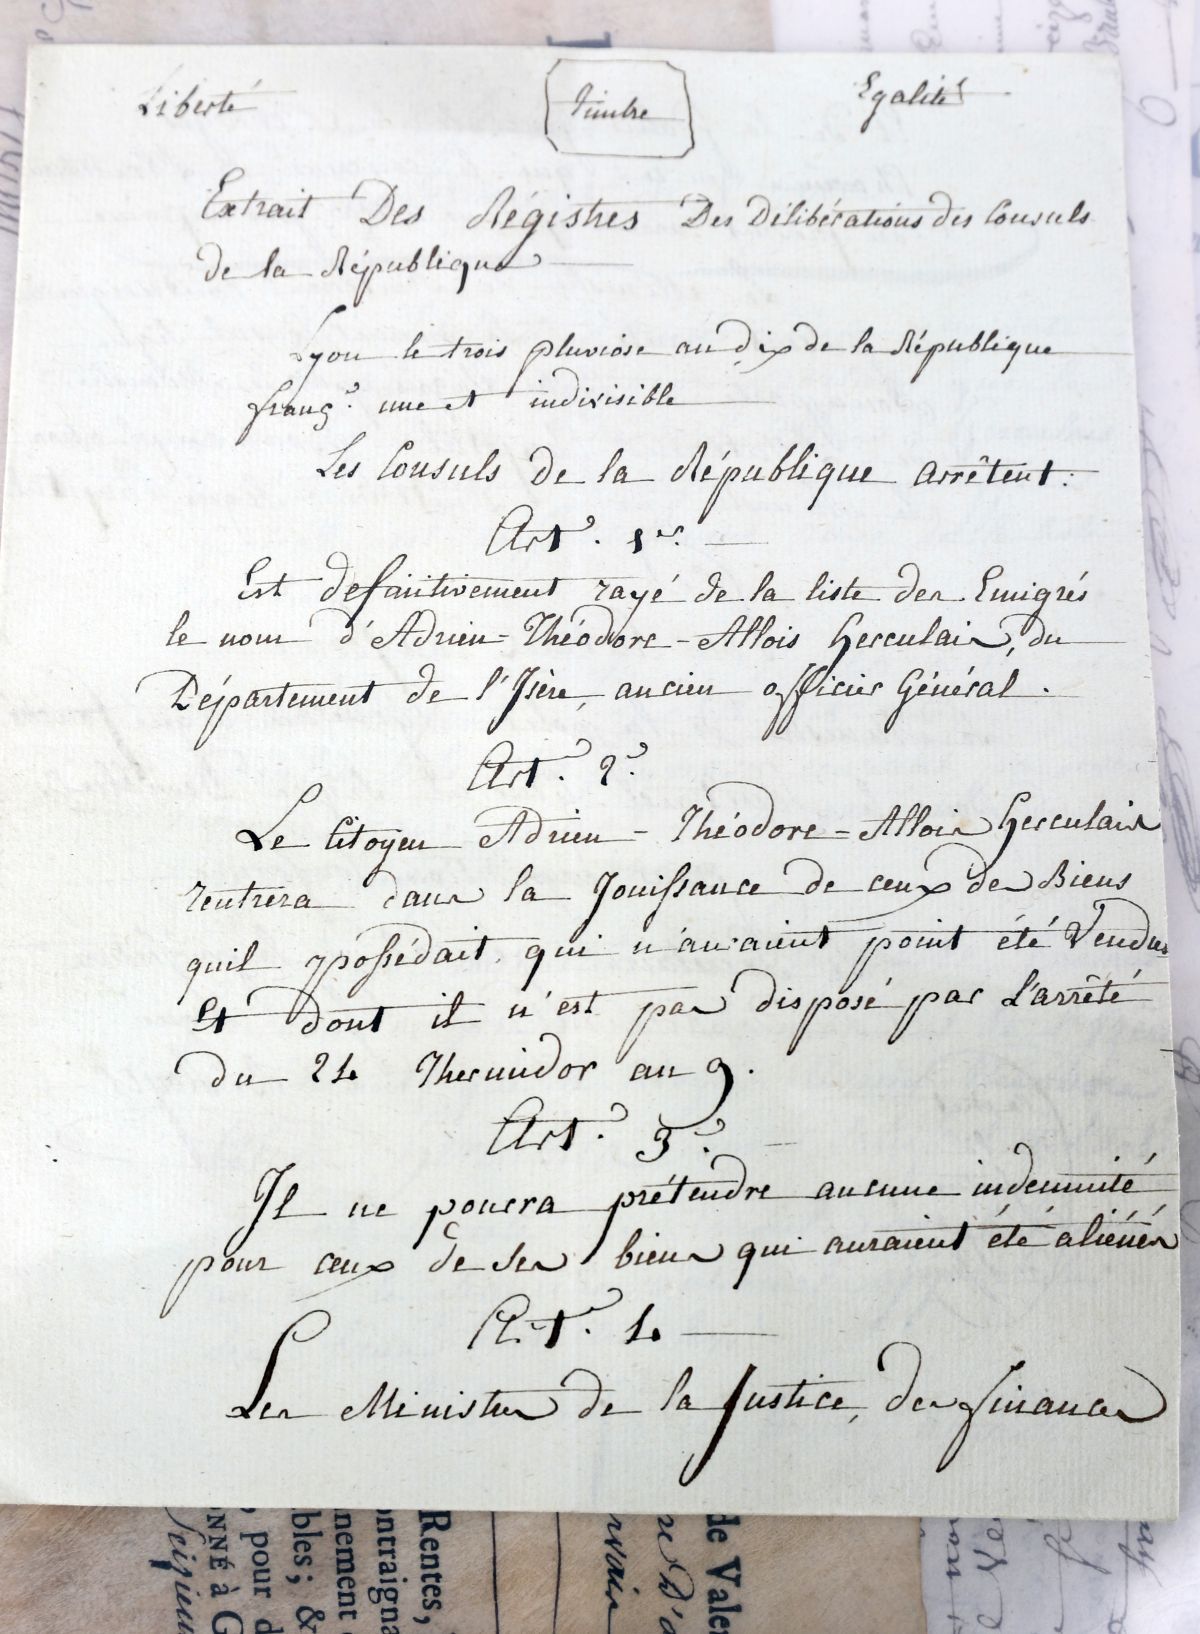 Liberté
Timbre
Egalité
Extrait Des Régistres Des Délibérations des Consuls
de la République
Lyon le trois pluviose an dix de la République
franç.e une et indivisible
Les Consuls de la République arrêtent:
Art.e 1er.
Est definitivement rayé de la liste des Emigrés
le nom d'Adrien=Théodore=Allois Herculais, du
Département de l'Isère, ancien officier Général.
Art.e 2e.
Le Citoyen Adrien=Théodore=Allois Herculais
rentrera dans la Jouissance de ceux des Biens
quil possédait, qui n'auraient point été Vendus
Et dont il n'est pas disposé par L'arrêté
du 24 Thermidor an 9.
Art.e 3e.
Il ne pourra prétendre aucune indemnité
pour ceux de ses biens qui auraient été aliénés
Art.e 4
Les Ministres de la Justice, des finances
Rentes,
contraigna
nement
bles; &
, pour d
ONNÉ à G
de Valen